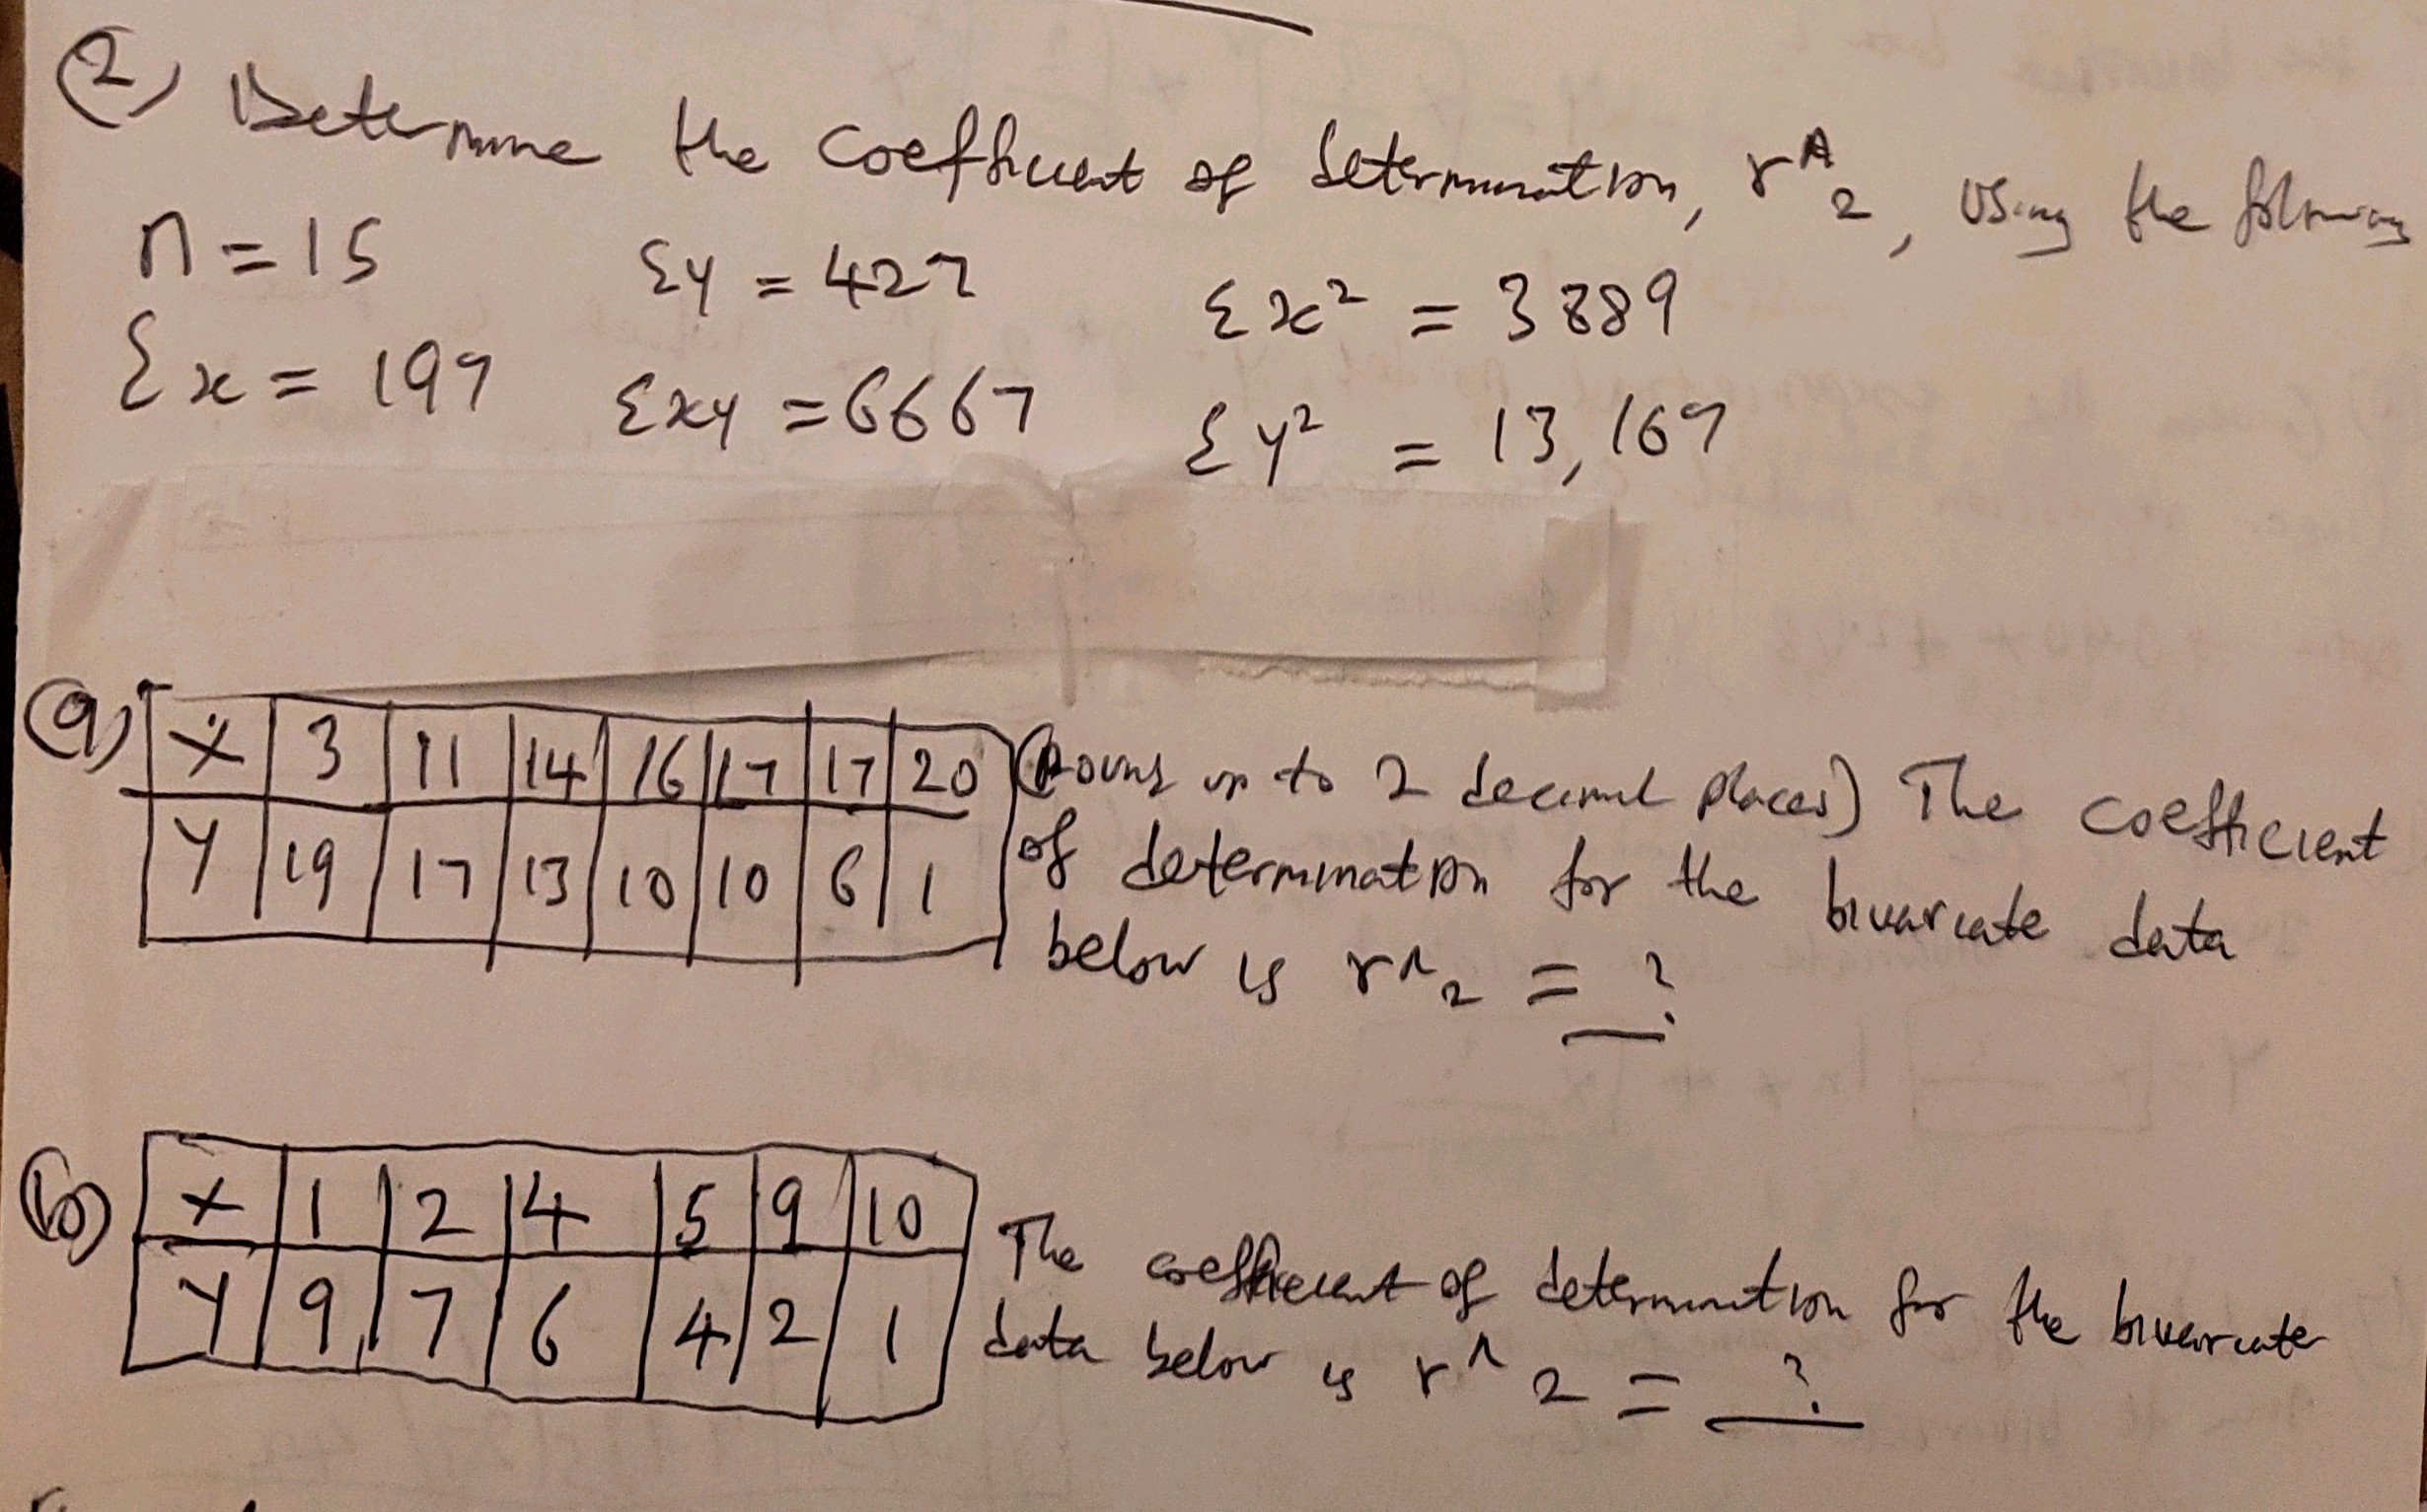 ② Determine the coefficient of determination, r^2, using the following
n = 15 Σy = 427 Σx² = 3889
Σx = 197 Σxy = 6667 Σy² = 13,167
(a) X 3 11 14 16 17 17 20
Y 19 17 13 10 10 6 1
(Round up to 2 decimal places) The coefficient
of determination for the bivariate data
below is r^2 = ?
(b) X 1 2 4 5 9 10
Y 9 7 6 4 2 1
The coefficient of determination for the bivariate
data below is r^2 = ?